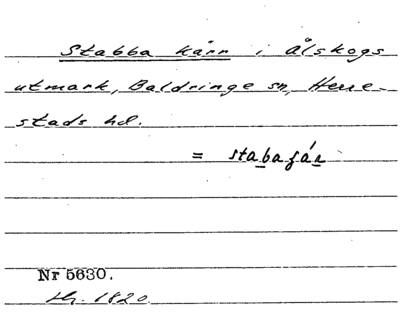 Stabba kärr i Ålskogs
utmark, Baldringe sn, Herre-
stads hd.
= stabaʃár
Nr 5630.
1820.